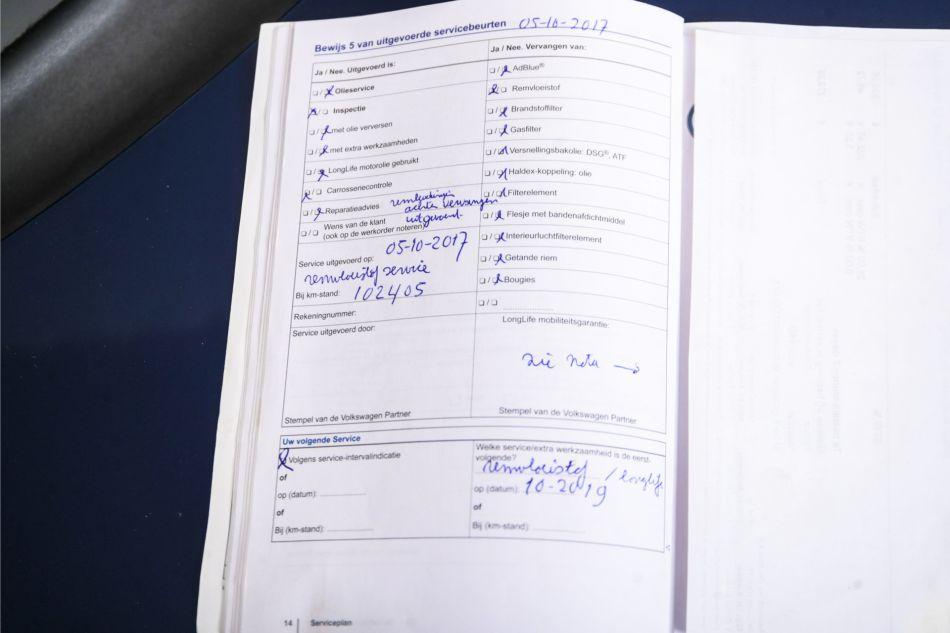 Bewijs 5 van uitgevoerde servicebeurten 05-10-2017
Ja / Nee. Uitgevoerd is:
Olieservice
Inspectie
met olie verversen
met extra werkzaamheden
LongLife motorolie gebruikt
Carrosseriecontrole
Reparatieadvies remleidingen
achter vervangen
uitgevoerd.
Wens van de klant
(ook op de werkorder noteren)
Service uitgevoerd op: 05-10-2017
remvloeistof service
Bij km-stand: 102405
Rekeningnummer:
Service uitgevoerd door:
Stempel van de Volkswagen Partner
Ja / Nee. Vervangen van:
AdBlue®
Remvloeistof
Brandstoffilter
Gasfilter
Versnellingsbakolie: DSG®, ATF
Haldex-koppeling: olie
Filterelement
Flesje met bandenafdichtmiddel
Interieurluchtfilterelement
Getande riem
Bougies
LongLife mobiliteitsgarantie:
zie nota →
Stempel van de Volkswagen Partner
Uw volgende Service
Volgens service-intervalindicatie
of
op (datum):
of
Bij (km-stand):
Welke service/extra werkzaamheid is de eerst-
volgende?
remvloeistof / longlife
op (datum): 10-2019
of
Bij (km-stand):
14 Serviceplan